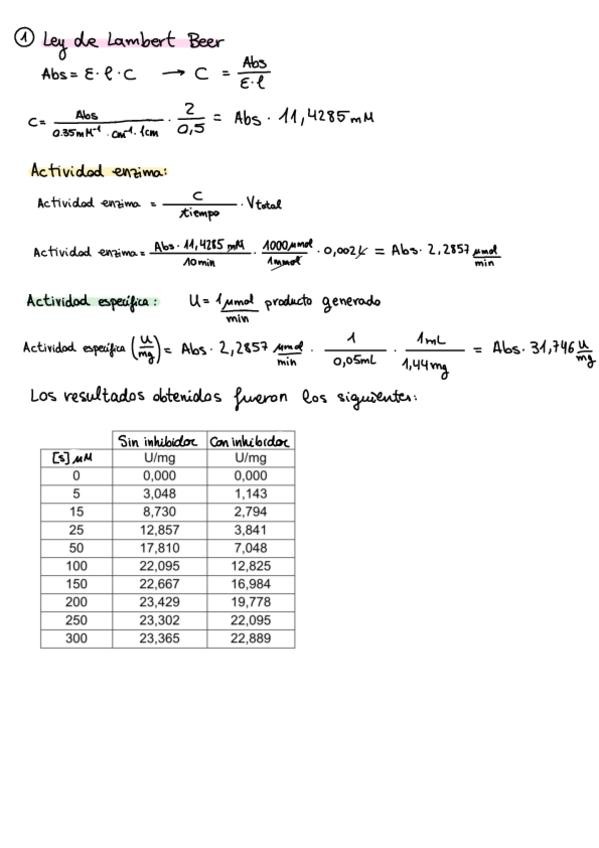 ① Ley de Lambert Beer
Abs = ε · l · C → C = Abs / ε · l
C = Abs / 0.35 mM⁻¹ · cm⁻¹ · 1cm · 2 / 0,5 = Abs · 11,4285 mM
Actividad enzima:
Actividad enzima = C / tiempo · Vtotal
Actividad enzima = Abs · 11,4285 mM / 10 min · 1000 μmol / 1 mmol · 0,002 L = Abs · 2,2857 μmol / min
Actividad específica: U = 1 μmol / min producto generado
Actividad específica (U / mg) = Abs · 2,2857 μmol / min · 1 / 0,05mL · 1mL / 1,44 mg = Abs · 31,746 U / mg
Los resultados obtenidos fueron los siguientes:
Sin inhibidor Con inhibidor
[S] μM U/mg U/mg
0 0,000 0,000
5 3,048 1,143
15 8,730 2,794
25 12,857 3,841
50 17,810 7,048
100 22,095 12,825
150 22,667 16,984
200 23,429 19,778
250 23,302 22,095
300 23,365 22,889